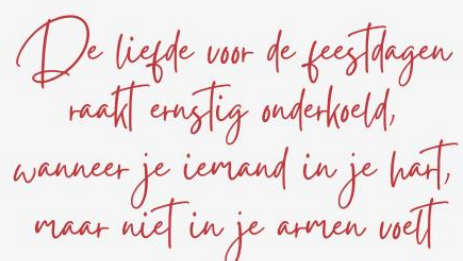 De liefde voor de feestdagen
raakt ernstig onderkoeld,
wanneer je iemand in je hart,
maar niet in je armen voelt